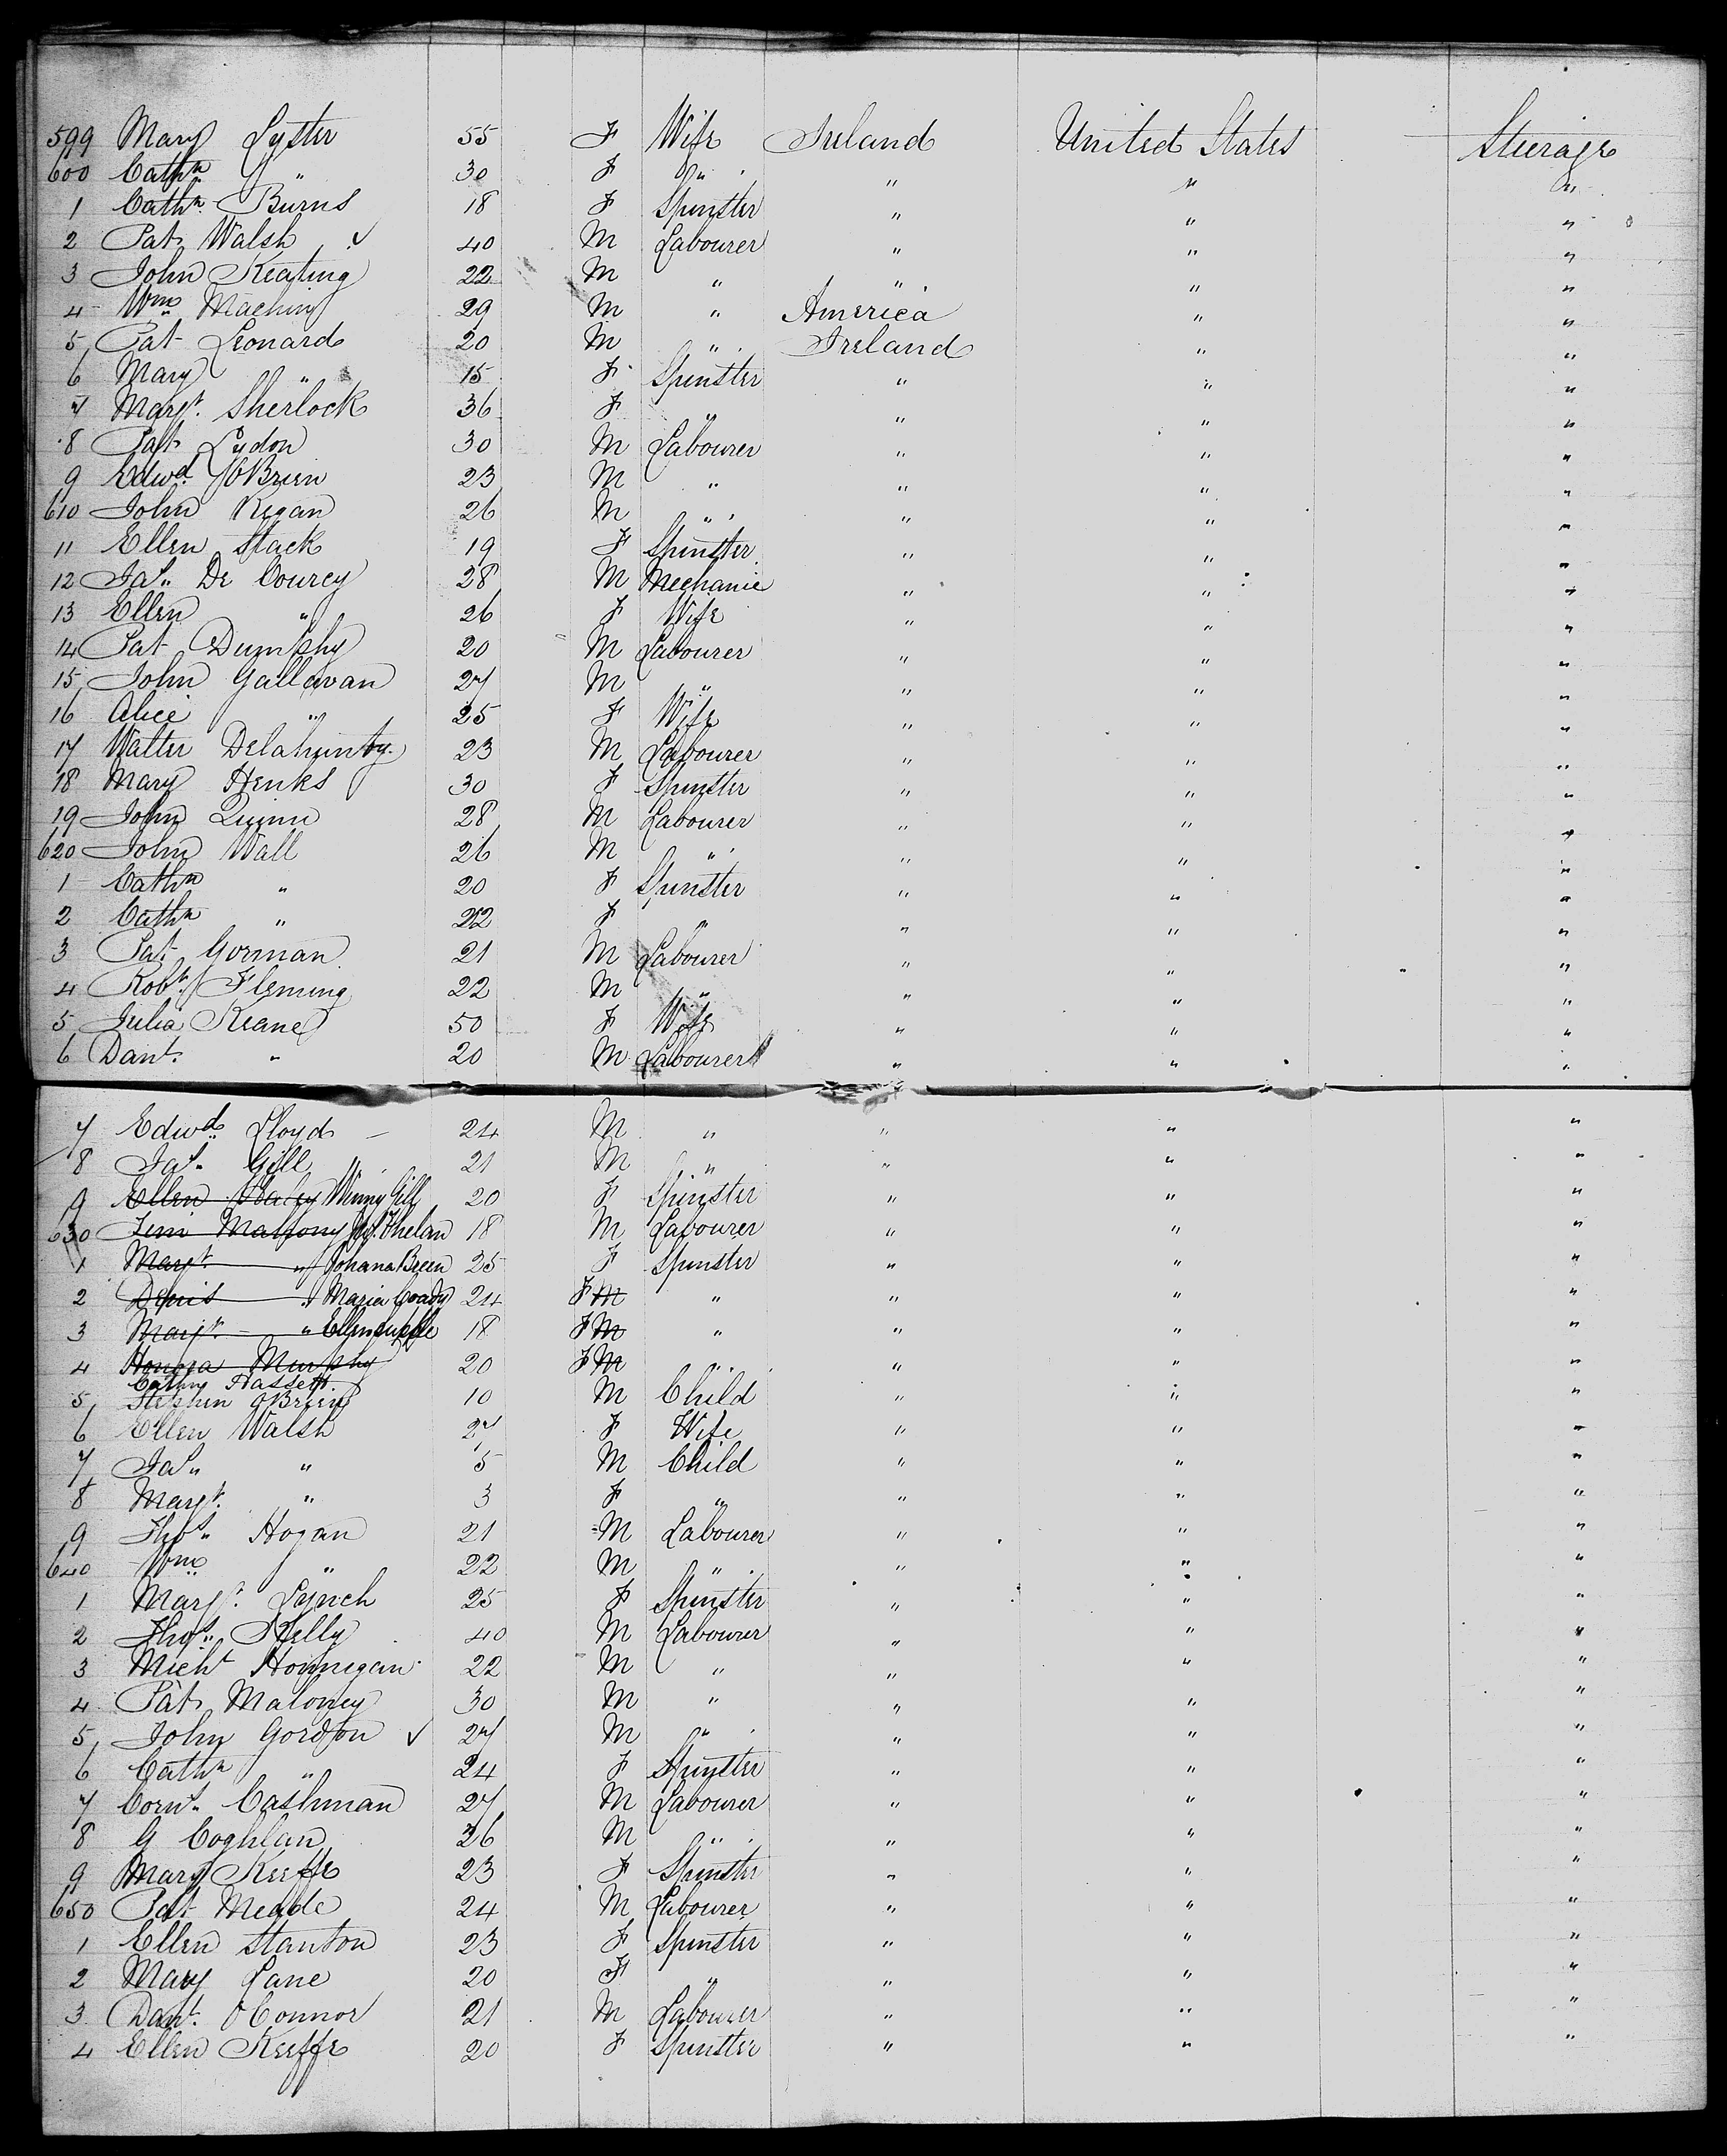 599 Mary Lyster 55 F Wife Ireland United States Steerage
600 Cathn " 30 F " " " "
1 Cathn Burns 18 F Spinster " " "
2 Pat Walsh ✓ 40 M Labourer " " "
3 John Keating 22 M " " " "
4 Wm 29 M " America " "
5 Pat Leonard 20 M " Ireland " "
6 Mary " 15 F Spinster " " "
7 Margt. Sherlock 36 F " " " "
8 Pat Lydon 30 M Labourer " " "
9 Edwd. OBrien 23 M " " " "
610 John Regan 26 M " " " "
11 Ellen Stack 19 F Spinster " " "
12 Jas. De Courcy 28 M Mechanic " " "
13 Ellen " 26 F Wife " " "
14 Pat Dumphy 20 M Labourer " " "
15 John Gallavan 27 M " " " "
16 Alice " 25 F Wife " " "
17 Walter Delahunty 23 M Labourer " " "
18 Mary Henks 30 F Spinster " " "
19 John Quinn 28 M Labourer " " "
620 John Wall 26 M " " " "
1 Cathn " 20 F Spinster " " "
2 Cathn " 22 F " " " "
3 Pat Gorman 21 M Labourer " " "
4 Robt. Fleming 22 M " " " "
5 Julia Keane 50 F Wife " " "
6 Danl. " 20 M Labourer " " "
7 Edwd. Lloyd 24 M " " " "
8 Jas. Gill 21 M " " " "
9 Ellen Winny Gill 20 F Spinster " " "
630 Jerri Mahony Phelan 18 M Labourer " " "
1 Margt. " Johana Breen 25 F Spinster " " "
2 Denis " Maria Coady 24 F M " " " "
3 Margt. " Ellen Supple 18 F M " " " "
4 Honora Murphy 20 F M " " " "
Cathne Hassett
5 Stephen OBrien 10 M Child " " "
6 Ellen Walsh 27 F Wife " " "
7 Jas. " 5 M Child " " "
8 Margt. " 3 F " " " "
9 Thos. Hogan 21 M Labourer " " "
640 Wm " 22 M " " " "
1 Margt. Lynch 25 F Spinster " " "
2 Thos. Kelly 40 M Labourer " " "
3 Michl Honnegan 22 M " " " "
4 Pat Maloney 30 M " " " "
5 John Gordon ✓ 27 M " " " "
6 Cathn " 24 F Spinster " " "
7 Corns. Cashman 27 M Labourer " " "
8 G Coghlan 26 M " " " "
9 Mary Keeffe 23 F Spinster " " "
650 Pat Meade 24 M Labourer " " "
1 Ellen Stanton 23 F Spinster " " "
2 Mary Lane 20 F " " " "
3 Danl. OConnor 21 M Labourer " " "
4 Ellen Keeffe 20 F Spinster " " "